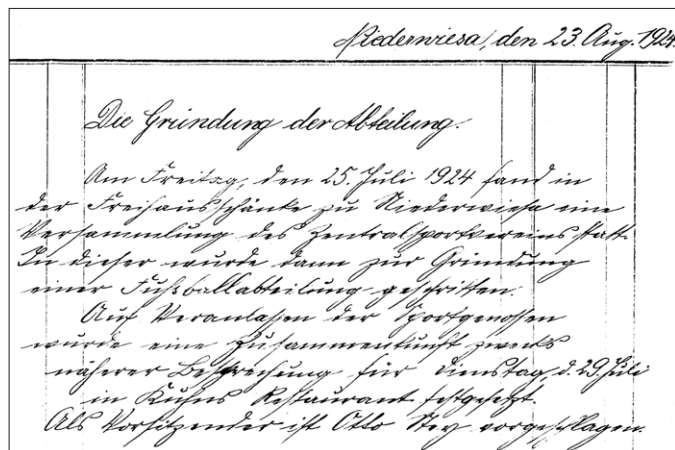 Niederwiesa, den 23. Aug. 1924.
Die Gründung der Abteilung.
Am Freitag, den 25. Juli 1924 fand in
der Freihausschänke zu Niederwiesa eine
Versammlung des Zentralsportvereins statt.
In dieser wurde dann zur Gründung
einer Fußballabteilung geschritten.
Auf Veranlassen der Sportgenossen
wurde eine Zusammenkunft zwecks
näherer Besprechung für Dienstag, d. 29. Juli
in Kuhns Restaurant festgesetzt.
Als Vorsitzender ist Otto vorgeschlagen.